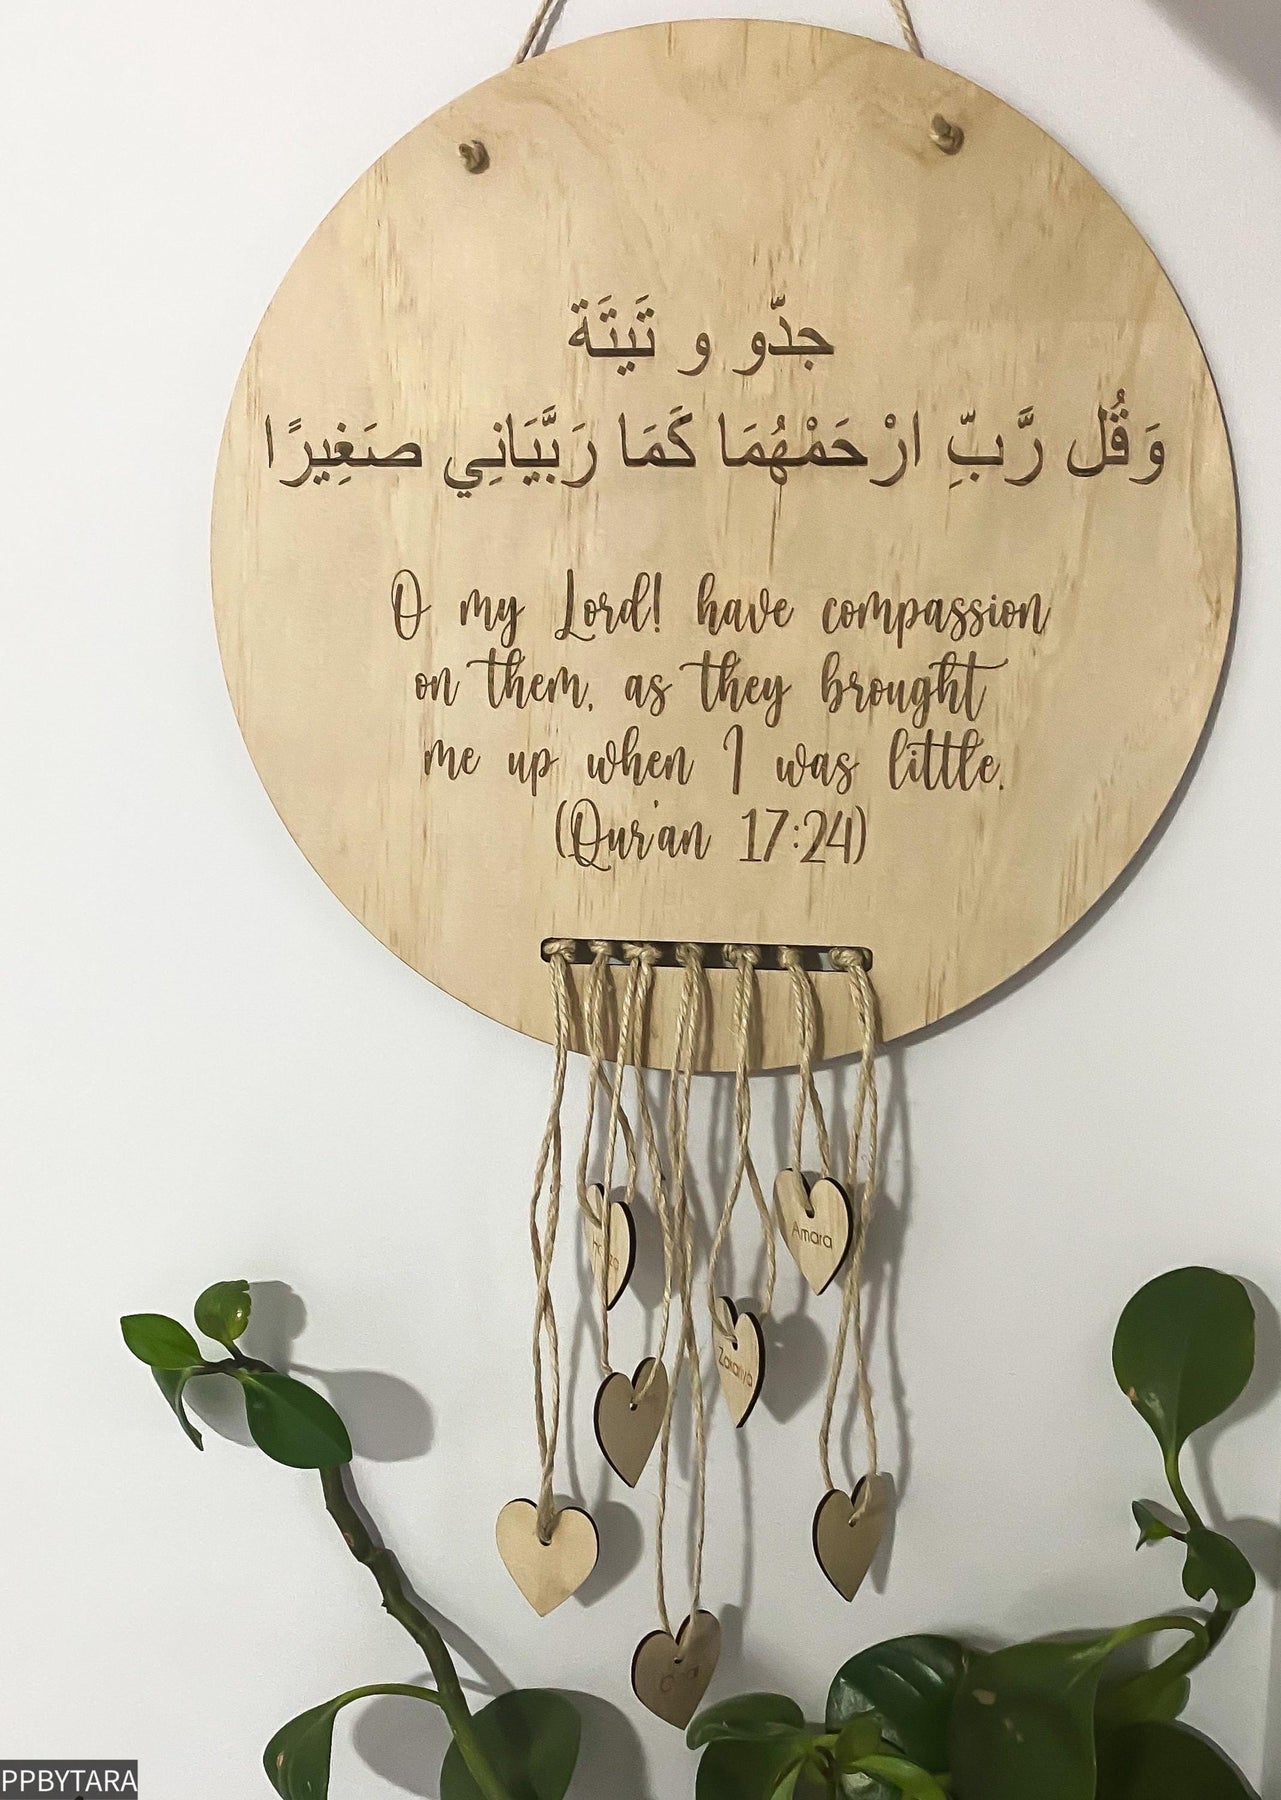 جدّو و تَيتَة
وَقُل رَّبِّ ارْحَمْهُمَا كَمَا رَبَّيَانِي صَغِيرًا
O my Lord! have compassion
on them, as they brought
me up when I was little.
(Qur'an 17:24)
Amara
Zakariya
PPBYTARA